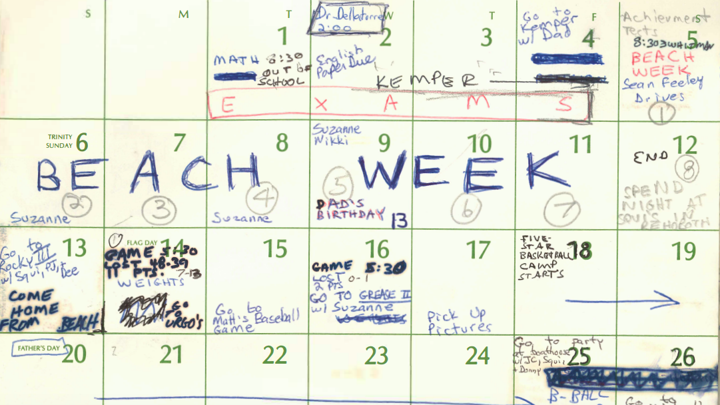 S M T W T F S
1
MATH 8:30
OUT OF
SCHOOL
2
Dr. Dellatorre
2:00
English
Paper Due
3
KEMPER
4
Go to
Kemper
w/ Dad
E X A M S
5
Achievment
Tests
8:30
BEACH
WEEK
Sean Feeley
Drives
1
TRINITY
SUNDAY 6
2
Suzanne
7
3
8
4
Suzanne
9
Suzanne
Nikki
5
DAD'S
BIRTHDAY 13
10
6
11
7
BEACH WEEK
12
END
8
SPEND
NIGHT AT
SQUI'S IN
REHOBOTH
13
Go to
Rocky III
w/ Squi,
COME
HOME
FROM BEACH
FLAG DAY 14
GAME
LOST 48-39
11 PTS. 7-13
WEIGHTS
GO
TO
URGO'S
15
Go to
Matt's Baseball
Game
16
GAME 5:30
LOST 0-1
2 PTS
GO TO GREASE II
w/ Suzanne
17
Pick Up
Pictures
18
FIVE-
STAR
BASKETBALL
CAMP
STARTS
19
FATHER'S DAY
20
21
22
23
24
25
Go to party
at boathouse
w/ JC, Squi,
+ Donny
B-BALL
26
Go to